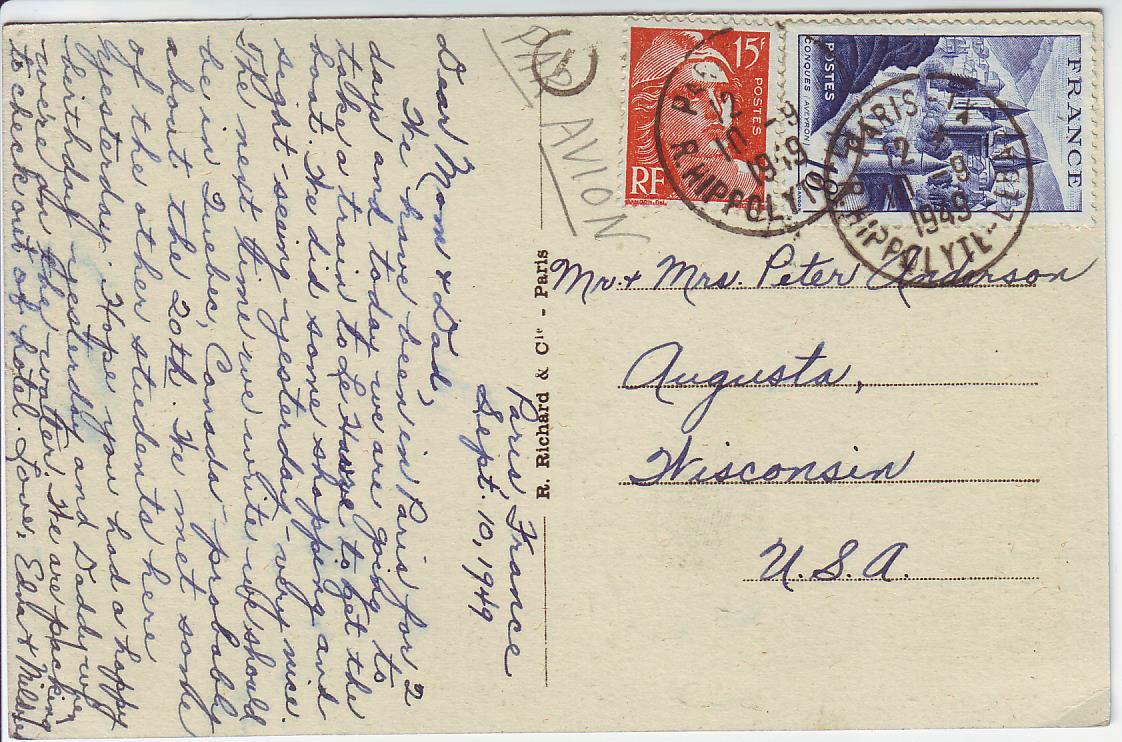 Paris, France
Sept. 10, 1949
Dear Mom & Dad,
We have been in Paris for 2
days and today we are going to
take a train to Le Havre to get the
boat. We did some shopping and
sight-seeing yesterday - very nice.
The next time we write we should
be in Quebec, Canada - probably
about the 20th. We met some
of the other students here
yesterday. Hope you had a happy
birthday yesterday and Daddy's when
we're on the water. We are packing
to check out of hotel. Love, Edna &
PAR
AVION
R. Richard & Cie - Paris
15F
POSTES
RF
FRANCE
POSTES
CONQUES (AVEYRON)
12
10 -9
1949
R. HIPPOLYTE
PARIS
12
10 -9
1949
R. HIPPOLYTE-LEBAS
Mr. & Mrs. Peter Anderson
Augusta,
Wisconsin
U.S.A.